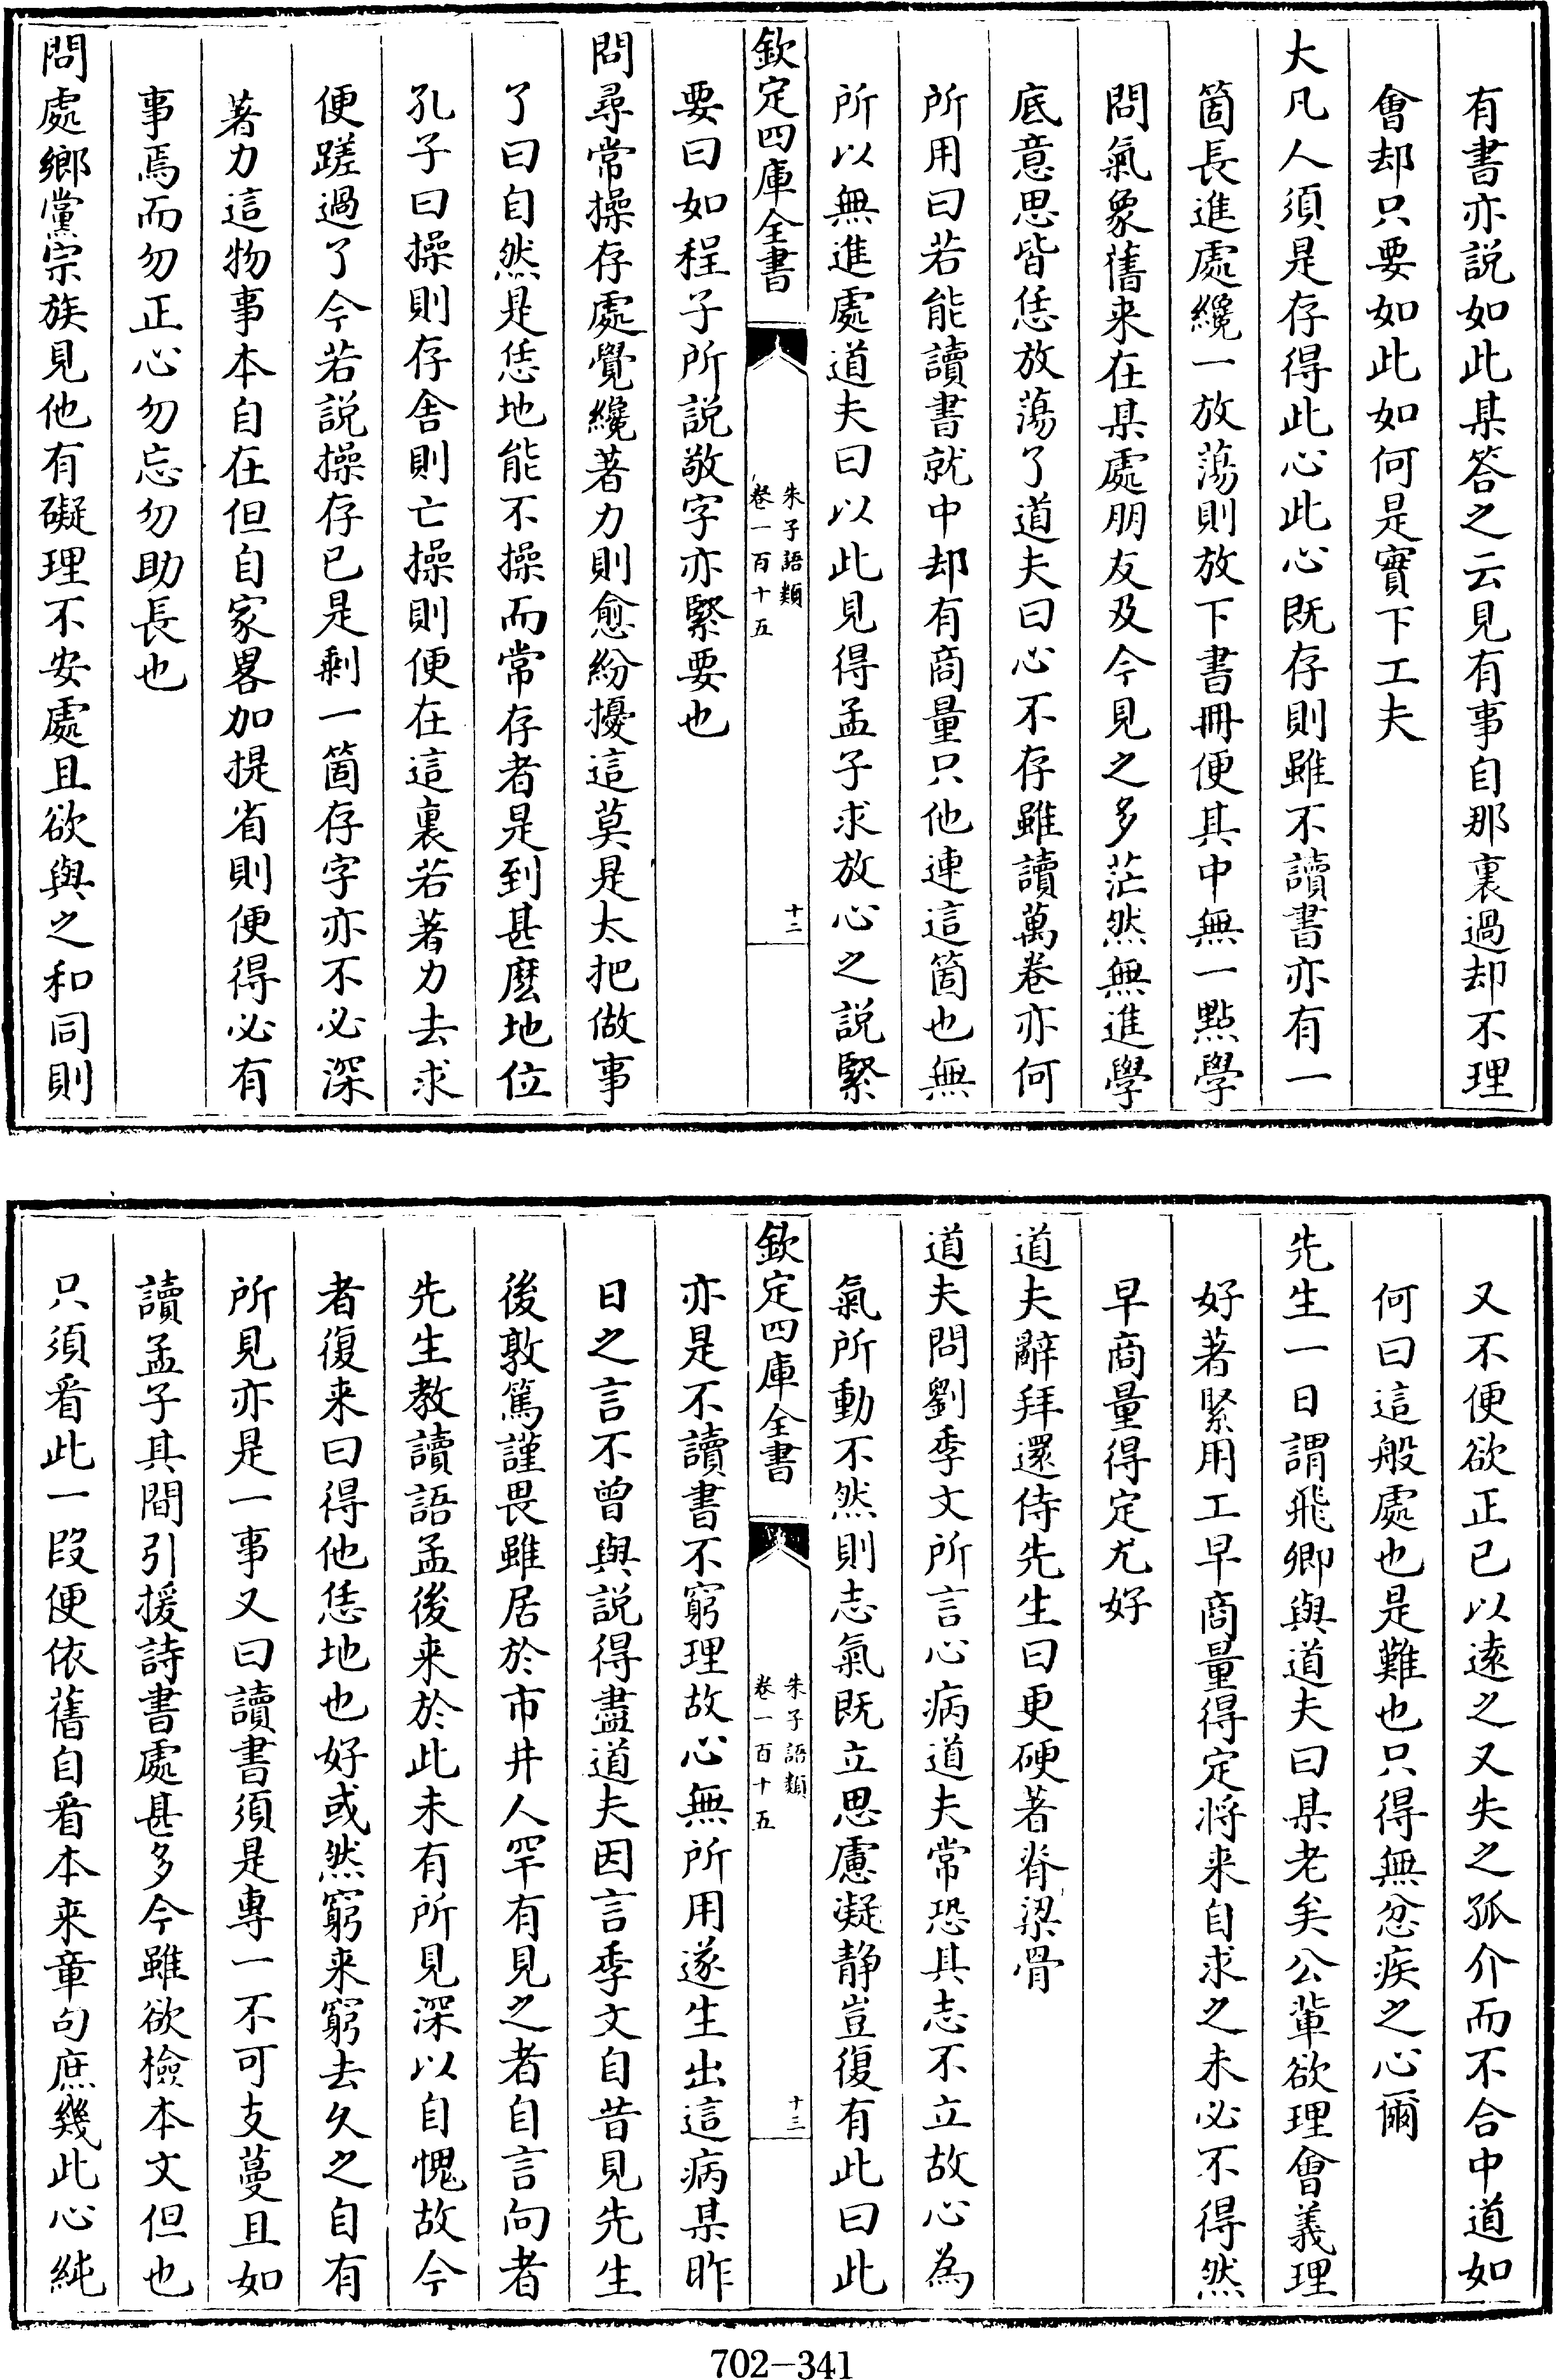 有書亦説如此某答之云見有事自那裏過却不理
會却只要如此如何是實下工夫
大凡人須是存得此心此心既存則雖不讀書亦有一
箇長進處纔一放蕩則放下書冊便其中無一點學
問氣象舊来在某處朋友及今見之多茫然無進學
底意思皆恁放蕩了道夫曰心不存雖讀萬卷亦何
所用曰若能讀書就中却有商量只他連這箇也無
所以無進處道夫曰以此見得孟子求放心之説緊
欽定四庫全書
朱子語類
卷一百十五
十二
要曰如程子所説敬字亦緊要也
問尋常操存處覺纔著力則愈紛擾這莫是太把做事
了曰自然是恁地能不操而常存者是到甚麽地位
孔子曰操則存舍則亡操則便在這裏若著力去求
便蹉過了今若説操存已是剩一箇存字亦不必深
著力這物事本自在但自家畧加提省則便得必有
事焉而勿正心勿忘勿助長也
問處鄉黨宗族見他有礙理不安處且欲與之和同則
又不便欲正已以逺之又失之孤介而不合中道如
何曰這般處也是難也只得無忿疾之心爾
先生一日謂飛卿與道夫曰某老矣公輩欲理會義理
好著緊用工早商量得定将来自求之未必不得然
早商量得定尤好
道夫辭拜還侍先生曰更硬著脊梁骨
道夫問劉季文所言心病道夫常恐其志不立故心為
氣所動不然則志氣既立思慮凝静豈復有此曰此
欽定四庫全書
朱子語類
卷一百十五
十三
亦是不讀書不窮理故心無所用遂生出這病某昨
日之言不曾與説得盡道夫因言季文自昔見先生
後敦篤謹畏雖居於市井人罕有見之者自言向者
先生教讀語孟後来於此未有所見深以自愧故今
者復来曰得他恁地也好或然窮来窮去久之自有
所見亦是一事又曰讀書須是專一不可支蔓且如
讀孟子其間引援詩書處甚多今雖欲檢本文但也
只須看此一段便依舊自看本来章句庶幾此心純
702-341